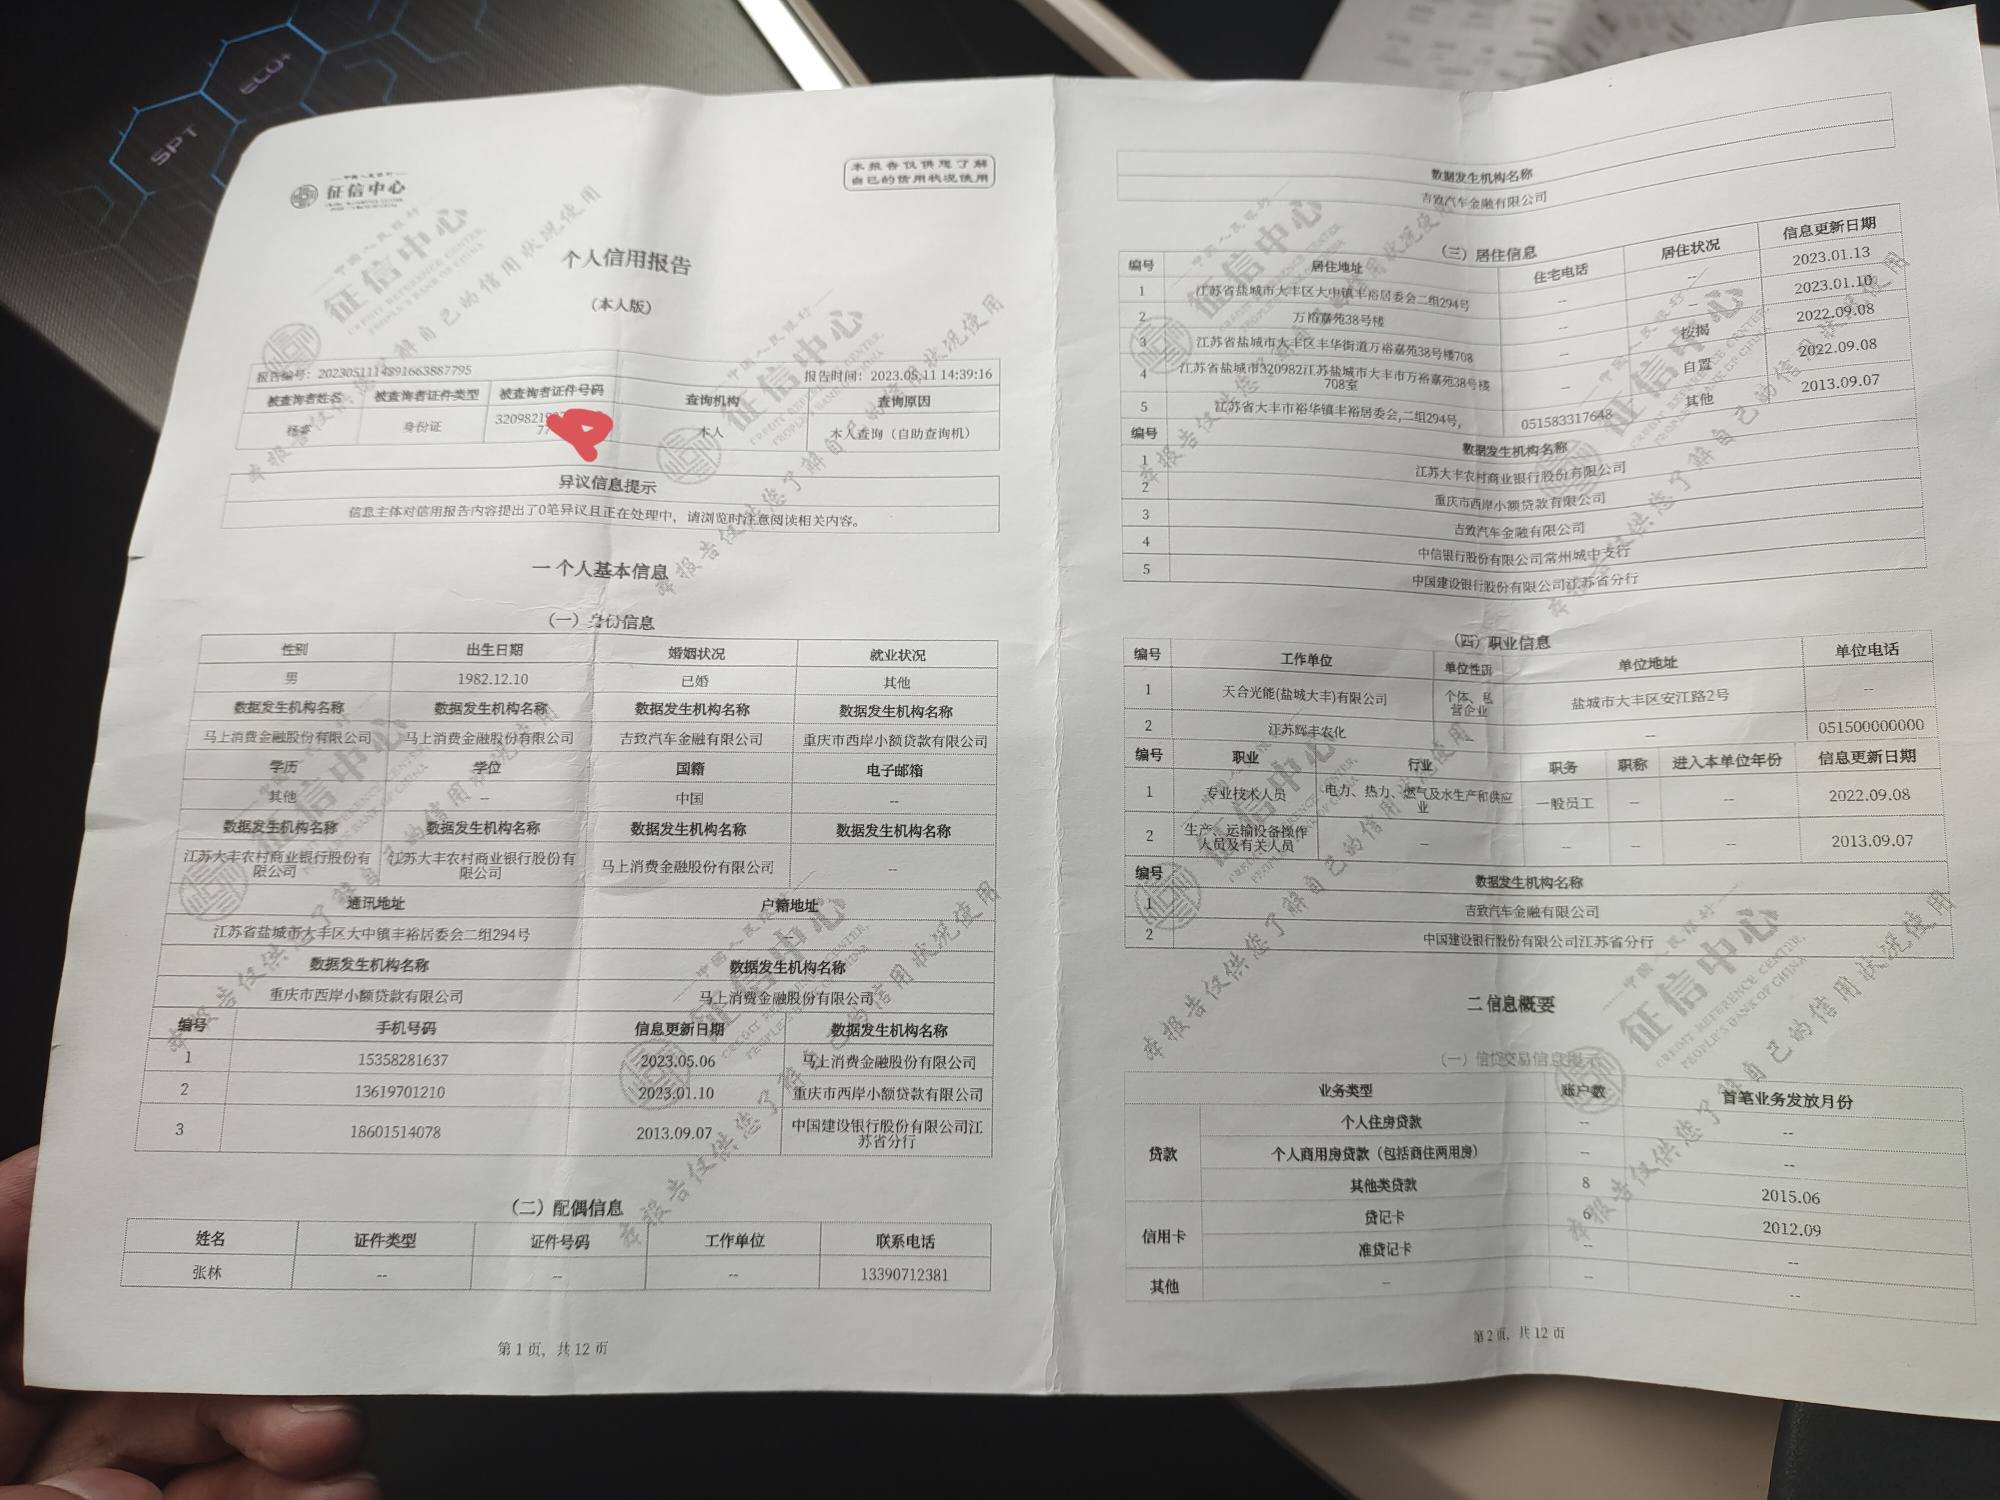 SPT
ECO+
征信中心
本报告仅供您了解
自己的信用状况使用
个人信用报告
（本人版）
报告编号：2023051114891663887795 报告时间：2023.05.11 14:39:16
被查询者姓名 被查询者证件类型 被查询者证件号码 查询机构 查询原因
身份证 本人 本人查询（自助查询机）
异议信息提示
信息主体对信用报告内容提出了0笔异议且正在处理中，请浏览时注意阅读相关内容。
一 个人基本信息
（一）身份信息
性别 出生日期 婚姻状况 就业状况
男 1982.12.10 已婚 其他
数据发生机构名称 数据发生机构名称 数据发生机构名称 数据发生机构名称
马上消费金融股份有限公司 马上消费金融股份有限公司 吉致汽车金融有限公司 重庆市西岸小额贷款有限公司
学历 学位 国籍 电子邮箱
其他 -- 中国 --
数据发生机构名称 数据发生机构名称 数据发生机构名称 数据发生机构名称
江苏大丰农村商业银行股份有限公司 江苏大丰农村商业银行股份有限公司 马上消费金融股份有限公司 --
通讯地址 户籍地址
江苏省盐城市大丰区大中镇丰裕居委会二组294号
数据发生机构名称 数据发生机构名称
重庆市西岸小额贷款有限公司 马上消费金融股份有限公司
编号 手机号码 信息更新日期 数据发生机构名称
1 15358281637 2023.05.06 马上消费金融股份有限公司
2 13619701210 2023.01.10 重庆市西岸小额贷款有限公司
3 18601514078 2013.09.07 中国建设银行股份有限公司江苏省分行
（二）配偶信息
姓名 证件类型 证件号码 工作单位 联系电话
张林 -- -- -- 13390712381
第 1 页，共 12 页
数据发生机构名称
吉致汽车金融有限公司
（三）居住信息
编号 居住地址 住宅电话 居住状况 信息更新日期
1 江苏省盐城市大丰区大中镇丰裕居委会二组294号 -- -- 2023.01.13
2 万裕嘉苑38号楼 -- -- 2023.01.10
3 江苏省盐城市大丰区丰华街道万裕嘉苑38号楼708 -- 按揭 2022.09.08
4 江苏省盐城市320982江苏盐城市大丰市万裕嘉苑38号楼708室 -- 自置 2022.09.08
5 江苏省大丰市裕华镇丰裕居委会,二组294号, 051583317648 其他 2013.09.07
编号 数据发生机构名称
1 江苏大丰农村商业银行股份有限公司
2 重庆市西岸小额贷款有限公司
3 吉致汽车金融有限公司
4 中信银行股份有限公司常州城中支行
5 中国建设银行股份有限公司江苏省分行
（四）职业信息
编号 工作单位 单位性质 单位地址 单位电话
1 天合光能(盐城大丰)有限公司 个体、私营企业 盐城市大丰区安江路2号 --
2 江苏辉丰农化 -- -- 051500000000
编号 职业 行业 职务 职称 进入本单位年份 信息更新日期
1 专业技术人员 电力、热力、燃气及水生产和供应业 一般员工 -- -- 2022.09.08
2 生产、运输设备操作人员及有关人员 -- -- -- -- 2013.09.07
编号 数据发生机构名称
1 吉致汽车金融有限公司
2 中国建设银行股份有限公司江苏省分行
二 信息概要
（一）信贷交易信息提示
业务类型 账户数 首笔业务发放月份
贷款 个人住房贷款 -- --
个人商用房贷款（包括商住两用房） -- --
其他类贷款 8 2015.06
信用卡 贷记卡 6 2012.09
准贷记卡 -- --
其他 -- -- --
第 2 页，共 12 页
中国人民银行
征信中心
CREDIT REFERENCE CENTER,
PEOPLE'S BANK OF CHINA
本报告仅供您了解自己的信用状况使用